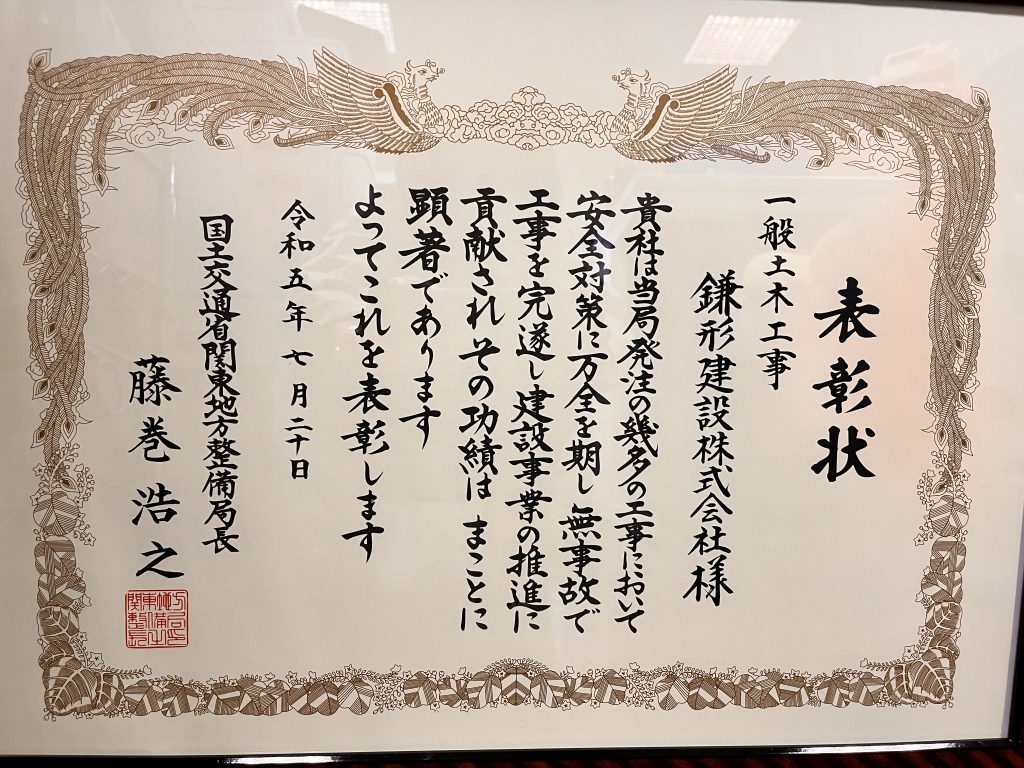 表彰状
一般土木工事
鎌形建設株式会社様
貴社は当局発注の幾多の工事において
安全対策に万全を期し無事故で
工事を完遂し建設事業の推進に
貢献されその功績はまことに
顕著であります
よってこれを表彰します
令和五年七月二十日
国土交通省関東地方整備局長
藤巻浩之